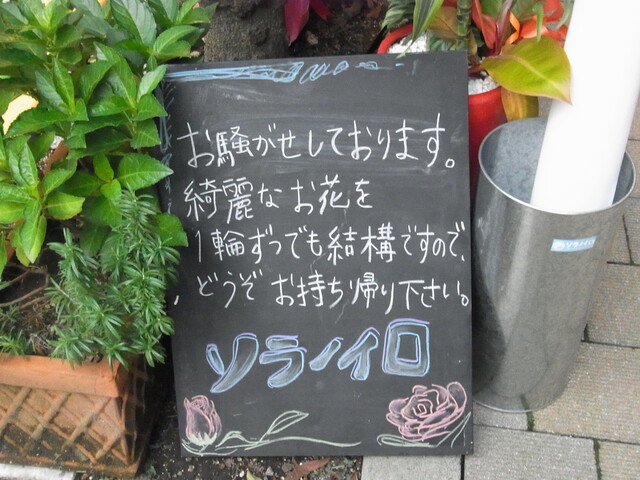 お騒がせしております。
綺麗なお花を
1輪ずつでも結構ですので、
どうぞお持ち帰り下さい。
ソラノイロ